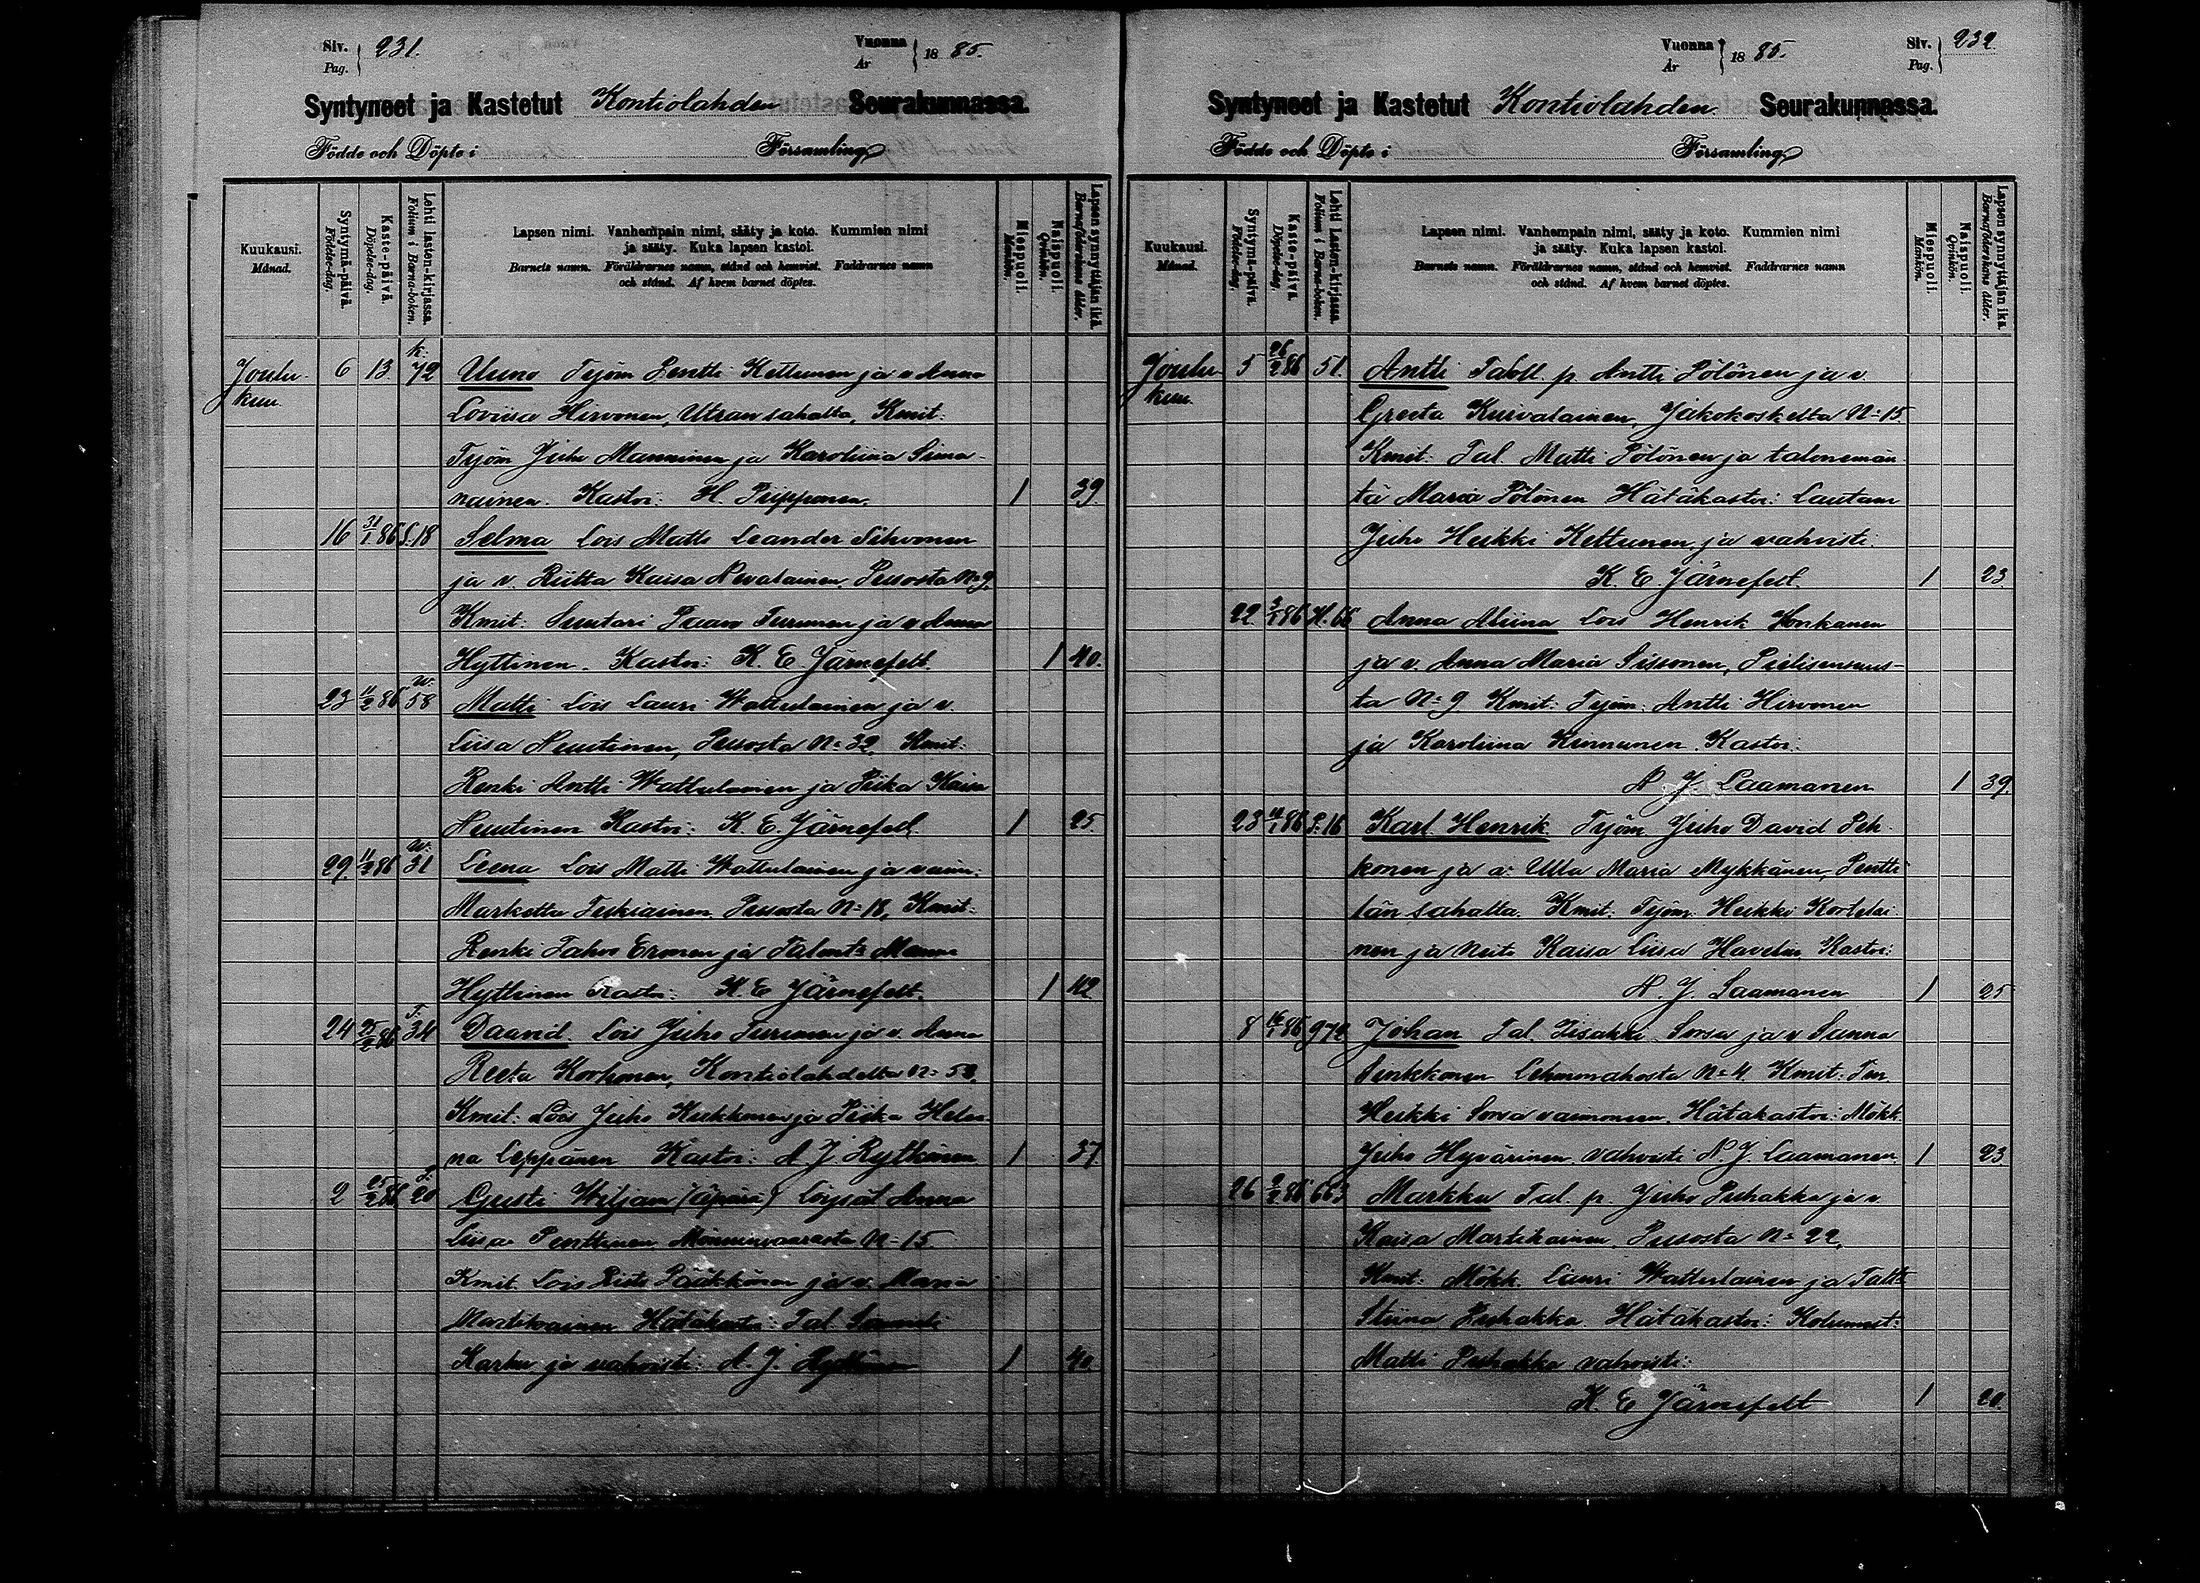 Siv. Pag. 231.
Vuonna År 1885.
Syntyneet ja Kastetut Kontiolahden Seurakunnassa.
Födde och Döpte i Församling
Kuukausi. Månad.
Syntymä-päivä. Födelse-dag.
Kaste-päivä. Döpelse-dag.
Lehti lasten-kirjassa. Folium i Barna-boken.
Lapsen nimi. Vanhempain nimi, sääty ja koto. Kummien nimi
ja sääty. Kuka lapsen kastoi.
Barnets namn. Föräldrarnes namn, stånd och hemvist. Faddrarnes namn
och stånd. Af hvem barnet döptes.
Miespuoli. Mankön.
Naispuoli. Qvinkön.
Lapsen synnyttäjän ikä. Barnaföderskans ålder.
Joulu- 6 13 k: 72 Uuno Työm Pentti Kettunen ja v Anna
kuu. Loviisa Hirvonen, Utran sahalta, Kmit:
Työm Juho Manninen ja Karoliina Sima-
nainen. Kastoi: H. Piipponen. 1 39.
16 31/1 86 S.18 Selma Lois Matti Leander Sihvonen
ja v. Riitta Kaisa Nevalainen, Pusosta N=9.
Kmit: Suutari Paavo Turunen ja v Anna
Hyttinen. Kastoi: K. E. Järnefelt. 1 40.
23 11/2 86 W: 58 Matti Lois Lauri Wattulainen ja v.
Liisa Nuutinen, Pusosta N=32, Kmit:
Renki Antti Wattulainen ja Piika Kaisa
Nuutinen Kastoi: K. E. Järnefelt 1 25.
29. 11/2 86 W: 31 Leena Lois Matti Wattulainen ja vaim:
Marketta Turkiainen Pusosta N=18, Kmit:
Renki Tahvo Eronen ja Talont: Manna
Hyttinen Kastoi: K. E Järnefelt. 1 42
24 25/2 86 T. 34 Daavid Lois Juho Turunen ja v. Anna
Reeta Korhonen, Kontiolahdelta N=50.
Kmit: Lois Juho Kukkonen ja Piika Hele-
na Leppänen Kastoi: A. J. Rytkönen 1 37.
2 25/2 86 P. 20 Kusti Wiljam (äpärä) Löysät Anna
Liisa Penttinen Mönninvaarasta N=15.
Kmit Lois Risto Pääkkönen ja v. Maria
Martikainen Hätäkastoi: Tal Samuli
Karhu ja vahvisti: A. J. Rytkönen 1 40
Vuonna År 1885.
Siv. Pag. 232
Syntyneet ja Kastetut Kontiolahden. Seurakunnassa.
Födde och Döpte i Församling
Kuukausi. Månad.
Syntymä-päivä. Födelse-dag.
Kaste-päivä. Döpelse-dag.
Lehti Lasten-kirjassa. Folium i Barna-boken.
Lapsen nimi. Vanhempain nimi, sääty ja koto. Kummien nimi
ja sääty. Kuka lapsen kastoi.
Barnets namn. Föräldrarnes namn, stånd och hemvist. Faddrarnes namn
och stånd. Af hvem barnet döptes.
Miespuoli. Mankön.
Naispuoli. Qvinkön.
Lapsen synnyttäjän ikä. Barnaföderskans ålder.
Joulu- 5 26/2 86 51. Antti Taloll. p. Antti Pölönen ja v.
kuu. Greeta Kurvalainen, Jakokoskelta N=15.
Kmit: Tal. Matti Pölönen ja talonemän
tä Maria Pölönen Hätäkastoi: Lautam
Juho Heikki Kettunen, ja vahvisti:
K. E. Järnefelt. 1 23
22 3/1 86 H. 66 Anna Aliina Lois Henrik Honkanen
ja v. Anna Maria Sissonen, Pielisensuus-
ta N=9. Kmit: Työm: Antti Hirvonen
ja Karoliina Kinnunen. Kastoi:
N J. Laamanen 1 39.
23 86 P:16 Karl Henrik Työm Juho David Peh-
konen ja v: Ulla Maria Mykkänen, Pentti
län sahalta. Kmit: Työm: Heikki Kortelai
nen ja Neito Kaisa Liisa Havelin, Kastoi:
N. J. Laamanen 1 25
8 16/1 86 974 Johan Tal. Iisakki Sorsa ja v Sanna
Sinkkonen Lehmonahosta N=4. Kmit:
Heikki Sorsa vaimonsa. Hätäkastoi: Mökk
Juho Hyvärinen. vahvisti N J. Laamanen 1 23
26 2/2 86 663 Markku Tal. p. Juho Puhakka ja v.
Kaisa Martikainen, Pusosta N=22,
Kmit: Mökk. Lauri Wattulainen ja Talt:
Stiina Puhakka. Hätäkastoi: Kolumest:
Matti Puhakka vahvisti:
K. E Järnefelt 1 20.